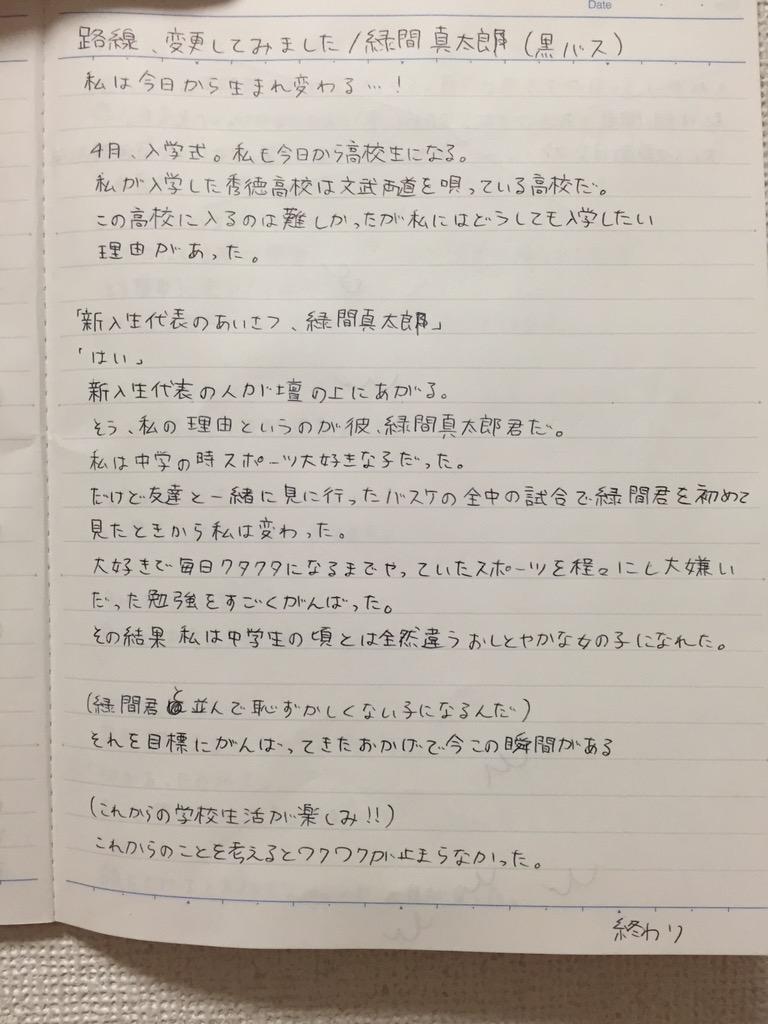 Date
路線、変更してみました/緑間真太郎(黒バス)
私は今日から生まれ変わる…!
4月、入学式。私も今日から高校生になる。
私が入学した秀徳高校は文武両道を唄っている高校だ。
この高校に入るのは難しかったが私にはどうしても入学したい
理由があった。
「新入生代表のあいさつ、緑間真太郎」
「はい」
新入生代表の人が壇の上にあがる。
そう、私の理由というのが彼、緑間真太郎君だ。
私は中学の時スポーツ大好きな子だった。
だけど友達と一緒に見に行ったバスケの全中の試合で緑間君を初めて
見たときから私は変わった。
大好きで毎日クタクタになるまでやっていたスポーツを程々にし大嫌い
だった勉強をすごくがんばった。
その結果 私は中学生の頃とは全然違うおしとやかな女の子になれた。
(緑間君と並んで恥ずかしくない子になるんだ)
それを目標にがんばってきたおかげで今この瞬間がある
(これからの学校生活が楽しみ!!)
これからのことを考えるとワクワクが止まらなかった。
終わり